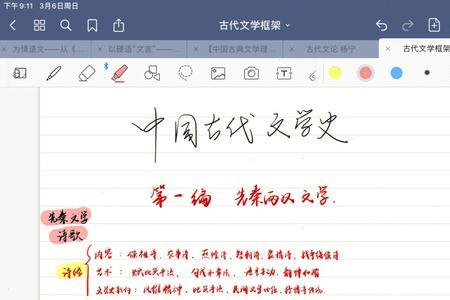 下午9:11 3月6日周日
古代文学框架
为情造文——从《...
以硬语“文言”——...
【中国古典文学理...
古代文论 杨宁
古代文学框架
中国古代文学史
第一编 先秦两汉文学.
先秦文学
诗歌
诗经
内容：祭祖诗、农事诗、燕飨诗、怨刺诗、婚恋诗、战争徭役诗
艺术：赋比兴手法、句式和章法、语言生动、韵律和谐
文学史影响：比兴手法、民间文学地位、抒情言志